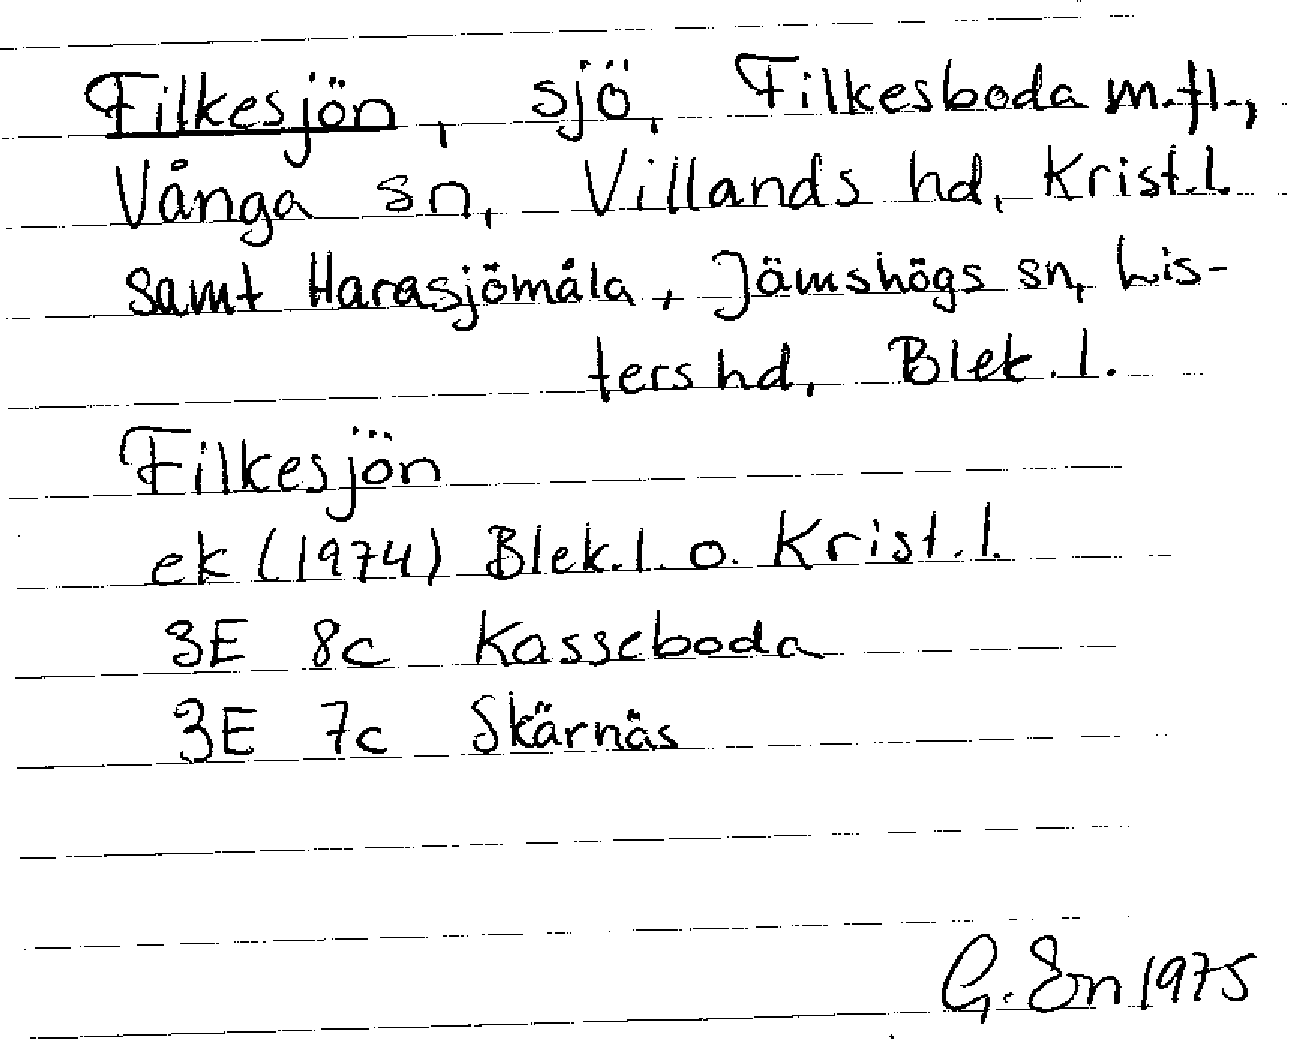 Filkesjön, sjö, Filkesboda m.fl.,
Vånga sn, Villands hd, Krist.l.
samt Harasjömåla, Jämshögs sn, Lis-
ters hd, Blek.l.
Filkesjön
ek (1974) Blek.l. o. Krist.l.
3E 8c Kasseboda
3E 7c Skärnäs
G. En 1975